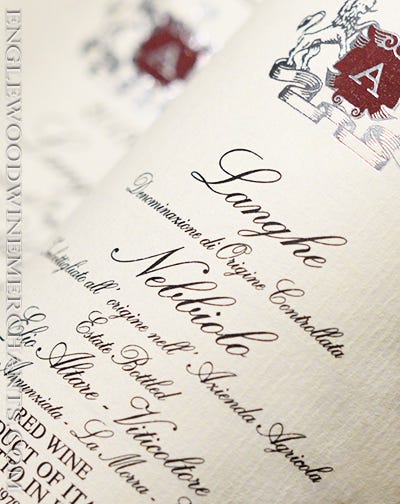 ENGLEWOODWINEMERCHANTS.COM
A
A
Langhe
Denominazione di Origine Controllata
Nebbiolo
all' origine nell' Azienda Agricola
Estate Bottled
Elio Altare - Viticoltore
Annunziata - La Morra -
RED WINE
PRODUCT OF